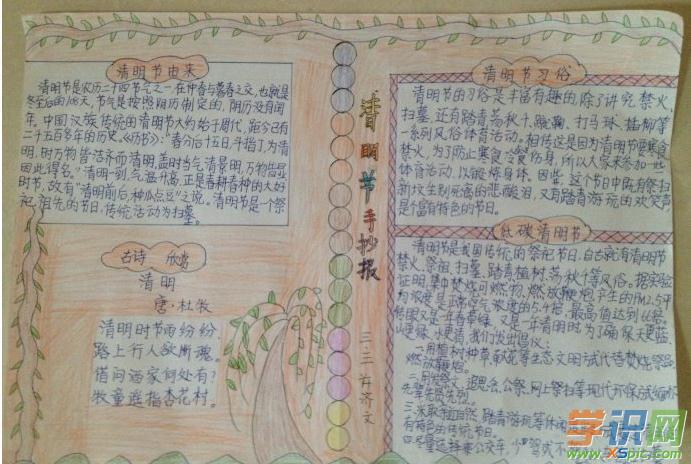 清明节由来
清明节是农历二十四节气之一,在仲春与暮春之交,也就是
冬至后的108天,节气是按照阳历制定的,阴历没有闰
年,中国汉族传统的清明节大约始于周代,距今已有
二千五百多年的历史。《历书》:"春分后十五日,斗指丁,为清
明,时万物皆洁齐而清明,盖时当气清景明,万物皆显,
因此得名。"清明一到,气温升高,正是春耕春种的大好
时节,故有"清明前后,种瓜点豆"之说。清明节是一个祭
祀祖先的节日,传统活动为扫墓。
古诗欣赏
清明
唐·杜牧
清明时节雨纷纷
路上行人欲断魂。
借问酒家何处有?
牧童遥指杏花村。
清明节手抄报
三.三 许济文
清明节习俗
清明节的习俗是丰富有趣的,除了讲究禁火、
扫墓,还有踏青、荡秋千、蹴鞠、打马球、插柳等
一系列风俗体育活动。相传这是因为清明节要寒食
禁火,为了防止寒食冷餐伤身,所以大家来参加一些
体育活动,以锻炼身体。因些,这个节日中既有祭扫
新坟生别死离的悲酸泪,又有踏青游玩的欢笑声,
是个富有特色的节日。
低碳清明节
清明节是我国传统的祭祀节日,自古就有清明节
禁火、祭祖、扫墓、踏青植树、荡秋千等风俗。据实验
证明,集中焚烧可燃物、燃放鞭炮产生的PM2.5平
均浓度是正常空气浓度的5千倍,最高值达到
又是一年清明时,为了确保天更蓝、
山更绿、水更清,我们发出倡议:
一.用植树种草、献花等生态文明
燃放鞭炮。
二.用发短文、追思会、公祭、网上祭扫等现代环保
先辈先贤先烈。
三.采取拥抱自然、踏青游玩等
有特色的传统节日。
四.尽量选择乘公交车,
学识网
www.XSpic.com